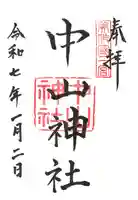 奉拝
中山神社
中山神社
令和七年一月二日